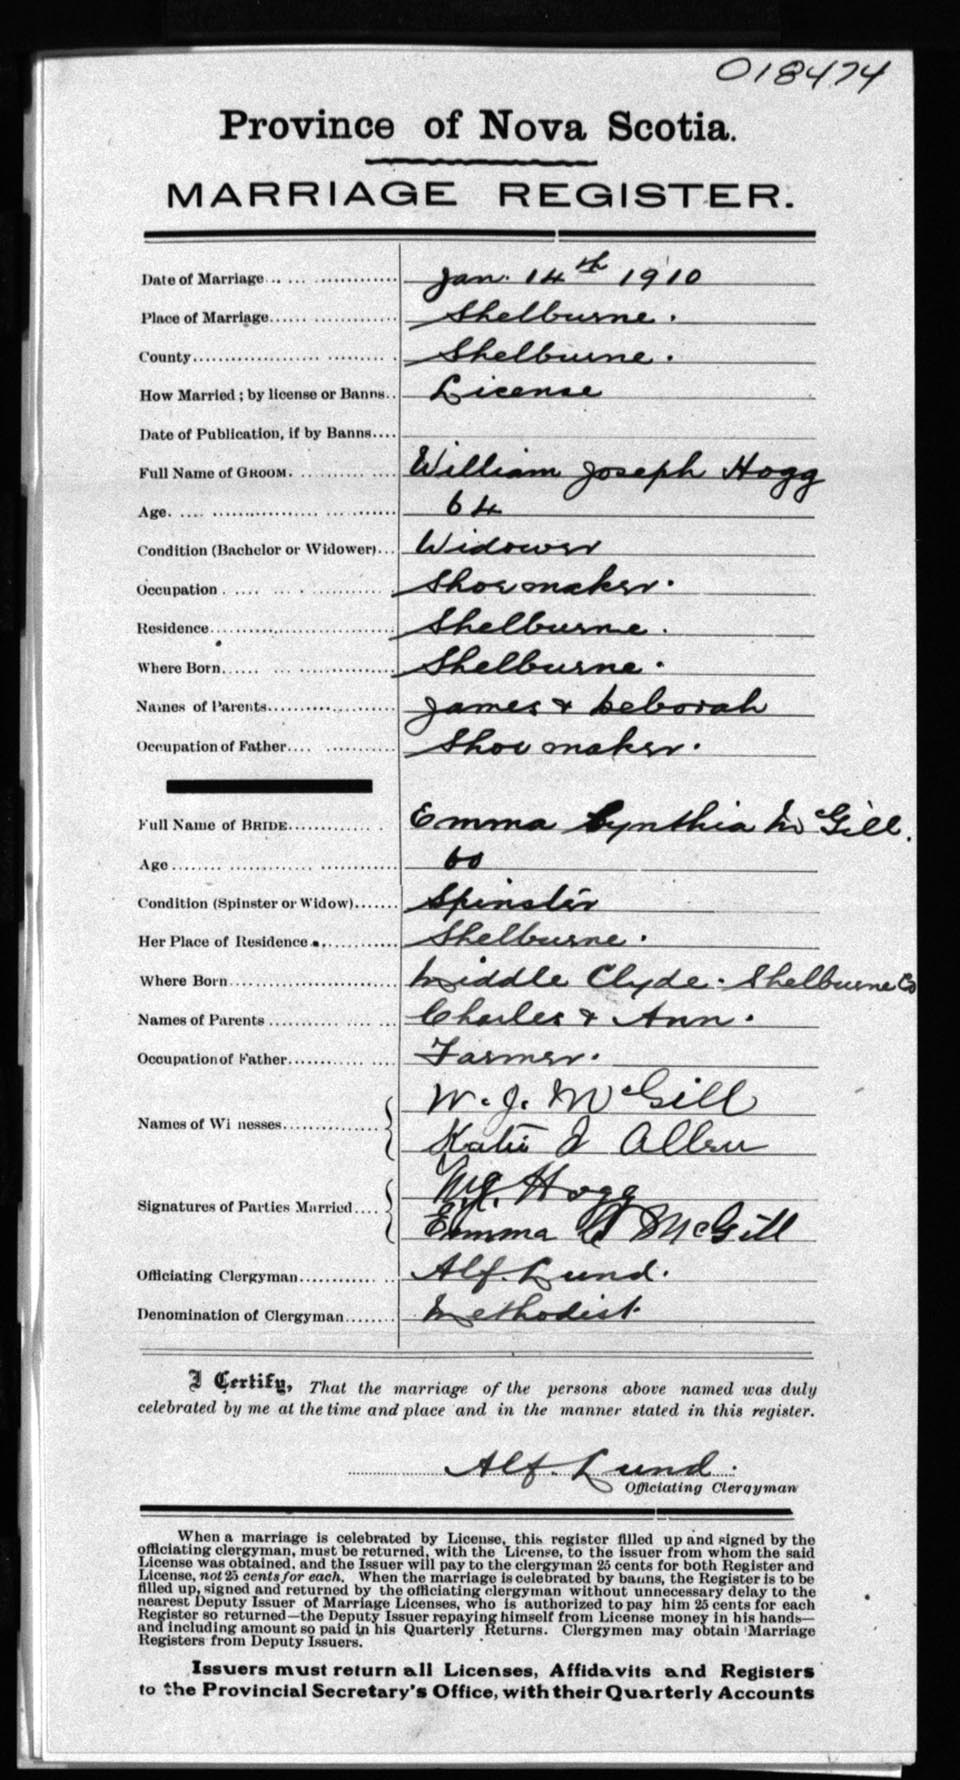 018474
Province of Nova Scotia.
MARRIAGE REGISTER.
Date of Marriage Jan. 14th 1910
Place of Marriage Shelburne.
County Shelburne.
How Married; by license or Banns License
Date of Publication, if by Banns
Full Name of GROOM. William Joseph Hogg
Age. 64
Condition (Bachelor or Widower) Widower
Occupation Shoemaker.
Residence Shelburne.
Where Born Shelburne.
Names of Parents James & Deborah
Occupation of Father Shoemaker.
Full Name of BRIDE Emma Cynthia McGill.
Age 60
Condition (Spinster or Widow) Spinster
Her Place of Residence Shelburne.
Where Born Middle Clyde. Shelburne Co
Names of Parents Charles & Ann.
Occupation of Father Farmer.
W. J. McGill
Names of Wi nesses
Katie J Allen
W.J. Hogg
Signatures of Parties Married
Emma C McGill
Officiating Clergyman Alf. Lund.
Denomination of Clergyman Methodist
I Certify, That the marriage of the persons above named was duly
celebrated by me at the time and place and in the manner stated in this register.
Alf. Lund.
Officiating Clergyman
When a marriage is celebrated by License, this register filled up and signed by the
officiating clergyman, must be returned, with the License, to the issuer from whom the said
License was obtained, and the Issuer will pay to the clergyman 25 cents for both Register and
License, not 25 cents for each. When the marriage is celebrated by banns, the Register is to be
filled up, signed and returned by the officiating clergyman without unnecessary delay to the
nearest Deputy Issuer of Marriage Licenses, who is authorized to pay him 25 cents for each
Register so returned—the Deputy Issuer repaying himself from License money in his hands—
and including amount so paid in his Quarterly Returns. Clergymen may obtain Marriage
Registers from Deputy Issuers.
Issuers must return all Licenses, Affidavits and Registers
to the Provincial Secretary's Office, with their Quarterly Accounts